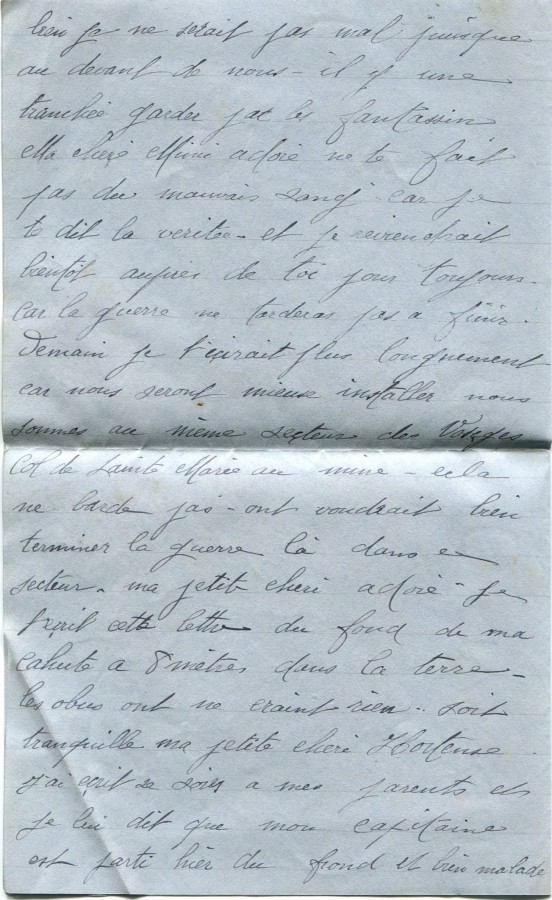 bien je ne serait pas mal puisque
au devant de nous - il y une
tranchée garder par les fantassin
Ma chère Mimi adoré ne te fait
pas du mauvais sang car je
te dit la veritée - et je reviendrait
bientôt aupres de toi pour toujours -
car la guerre ne tarderas pas a finir.
Demain je t'ecirait plus longuement
car nous seront mieux installer nous
sommes au même secteur des Vosges
Col de Sainte Marie au mine - cela
ne barde pas - ont voudrait bien
terminer la guerre là dans ce
secteur - ma petite cheri adoré - je
t'ecrit cette lettre du fond de ma
cahute a 8 mètres dans la terre -
les obus ont ne craint rien - soit
tranquille ma petite cheri Hortense
j'ai ecrit ce soir a mes parents et
je lui dit que mon capitaine
est parti hier du frond et bien malade